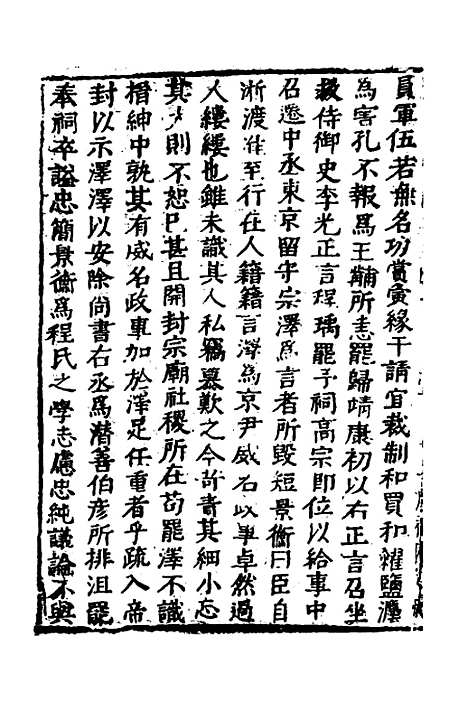 員軍伍若無名功賞夤緣干請宜裁制和買和糴鹽灋
為害孔不報爲王黼所恚罷歸靖康初以右正言召坐
救侍御史李光正言程瑀罷予祠高宗即位以給事中
召遷中丞東京留守宗澤爲言者所毀短景衡曰臣自
浙渡淮至行在人籍籍言澤為京尹威名政事卓然過
人縷縷也雖未識其人私竊慕歎之今訾責其細小忘
其大則不恕已甚且開封宗廟社稷所在苟罷澤不識
搢紳中孰其有威名政事加於澤足任重者乎疏入帝
封以示澤澤以安除尚書右丞爲潛善伯彦所排沮罷
奉祠卒謚忠簡景衡爲程氏之學志慮忠純議論不與